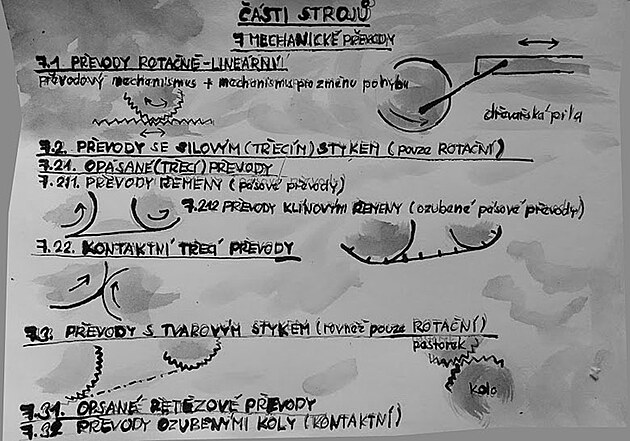 ČÁSTI STROJŮ
7 MECHANICKÉ PŘEVODY
7.1. PŘEVODY ROTAČNĚ-LINEÁRNÍ
převodový mechanismus + mechanismus pro změnu pohybu
dřevařská pila
7.2. PŘEVODY SE SILOVÝM (TŘECÍM) STYKEM (pouze ROTAČNÍ)
7.21. OPÁSANÉ (TŘECÍ) PŘEVODY
7.211. PŘEVODY ŘEMENY (pásové převody)
7.212 PŘEVODY KLÍNOVÝMI ŘEMENY (ozubené pásové převody)
7.22. KONTAKTNÍ TŘECÍ PŘEVODY
7.3. PŘEVODY S TVAROVÝM STYKEM (rovněž pouze ROTAČNÍ)
pastorek
kolo
7.31. OPSANÉ ŘETĚZOVÉ PŘEVODY
7.32 PŘEVODY OZUBENÝMI KOLY (KONTAKTNÍ)